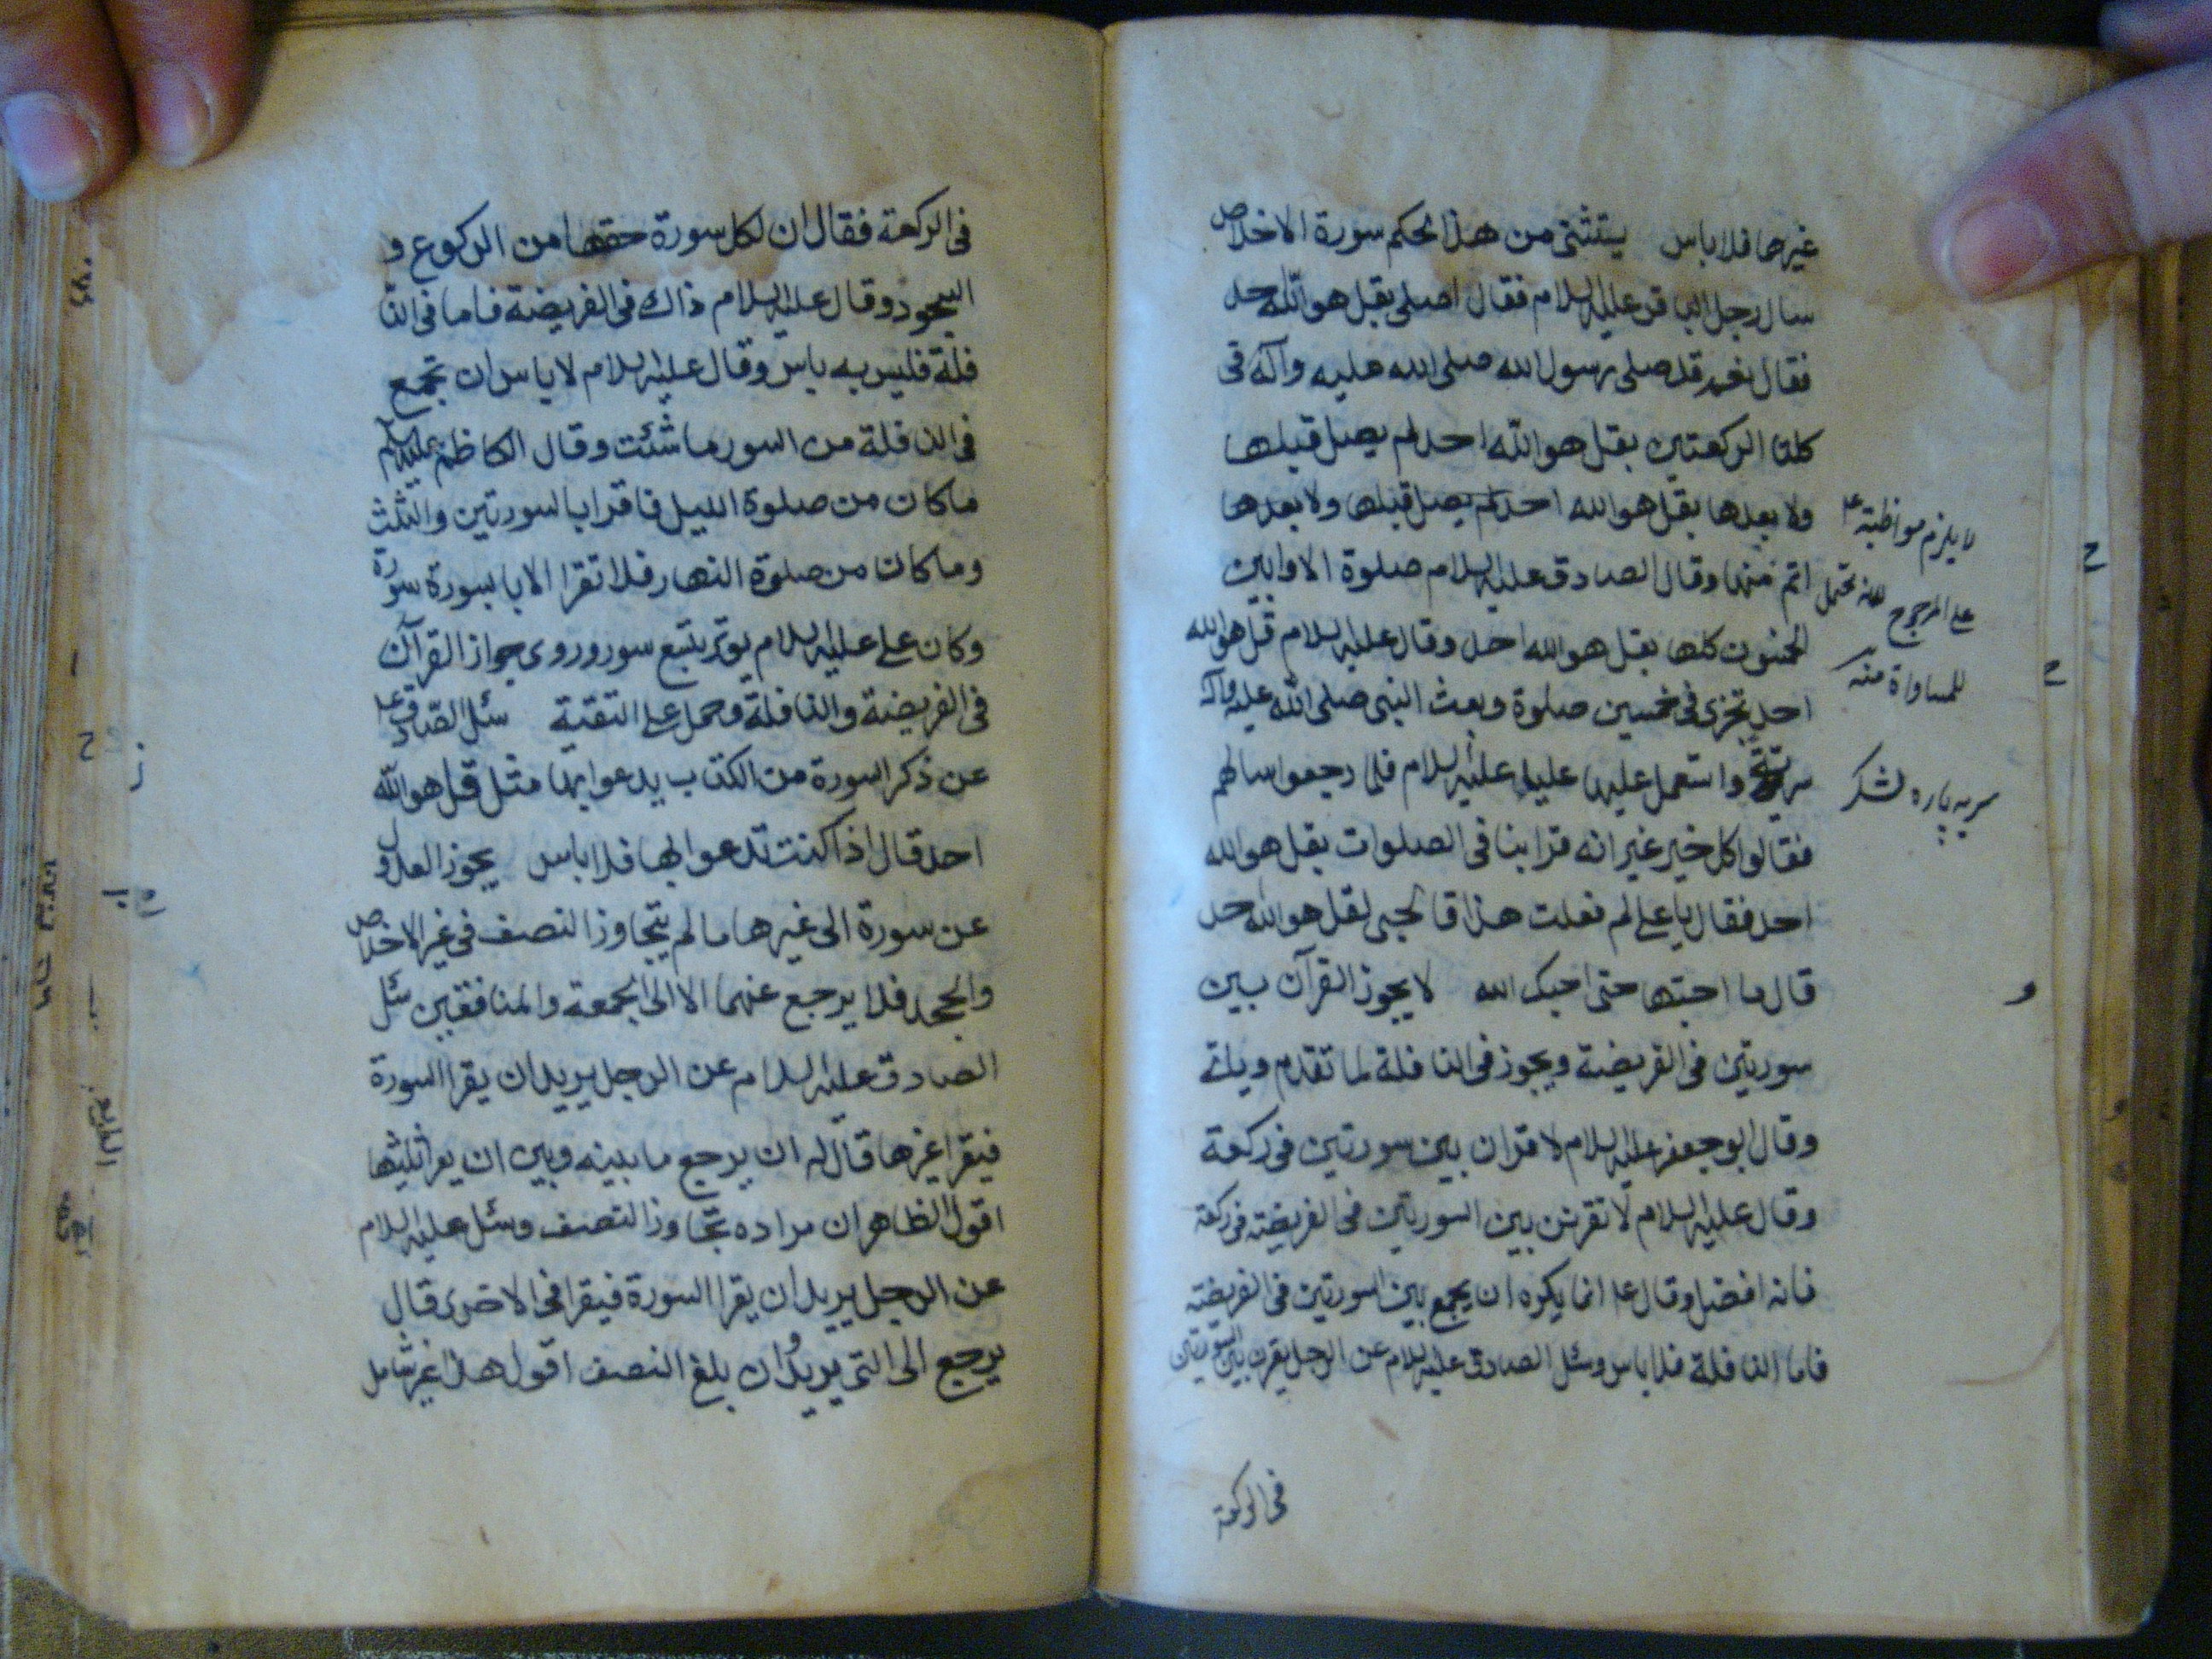 غيرها فلا باس يستثنى من هذا الحكم سورة الاخلاص
سال رجل الباقر عليه السلام فقال اصلى بقل هو الله احد
فقال نعم قد صلى رسول الله صلى الله عليه وآله فى
كلتا الركعتين بقل هو الله احد لم يصل قبلها
ولا بعدها بقل هو الله احد لم يصل قبلها ولا بعدها
اتم منها وقال الصادق عليه السلام صلوة الاوابين
الخمسون كلها بقل هو الله احد وقال عليه السلام قل هو الله
احد تجزى فى خمسين صلوة وبعث النبى صلى الله عليه وآله
سرية واستعمل عليها عليا عليه السلام فلما رجعوا سالهم
فقالوا كل خير غير انه قرا بنا فى الصلوات بقل هو الله
احد فقال يا على لم فعلت هذا قال لحبى لقل هو الله احد
قال ما احبتها حتى احبك الله لا يجوز القرآن بين
سورتين فى الفريضة ويجوز فى النافلة لما تقدم وياتى
وقال ابو جعفر عليه السلام لا قران بين سورتين فى ركعة
وقال عليه السلام لا تقرنن بين السورتين فى الفريضة فى ركعة
فانه افضل وقال ع انما يكره ان يجمع بين السورتين فى الفريضة
فاما النافلة فلا باس وسئل الصادق عليه السلام عن الرجل يقرن بين السورتين
فى الركعة
لا يلزم مواظبته ع
على المرجوح لانه يحتمل
للمساواة منه
سريه پاره لشكر
فى الركعة فقال ان لكل سورة حقها من الركوع و
السجود وقال عليه السلام ذاك فى الفريضة فاما فى النا
فلة فليس به باس وقال عليه السلام لا باس ان تجمع
فى النافلة من السور ما شئت وقال الكاظم عليه السلام
ما كان من صلوة الليل فاقرا بالسورتين والثلث
وما كان من صلوة النهار فلا تقرا الا بسورة سورة
وكان على عليه السلام يوتر بتسع سور وروى جواز القرآن
فى الفريضة والنافلة وحمل على التقية سئل الصادق ع
عن ذكر السورة من الكتاب يدعوا بها مثل قل هو الله
احد قال اذا كنت تدعوا بها فلا باس يجوز العدول
عن سورة الى غيرها ما لم يتجاوز النصف فى غير الاخلاص
والجحد فلا يرجع عنهما الا الى الجمعة والمنافقين سئل
الصادق عليه السلام عن الرجل يريد ان يقرا السورة
فيقرا غيرها قال له ان يرجع ما بينه وبين ان يقرا ثلثيها
اقول الظاهر ان مراده تجاوز النصف وسئل عليه السلام
عن الرجل يريد ان يقرا السورة فيقرا فى الاخرى قال
يرجع الى التى يريد وان بلغ النصف اقول هذا غير شامل